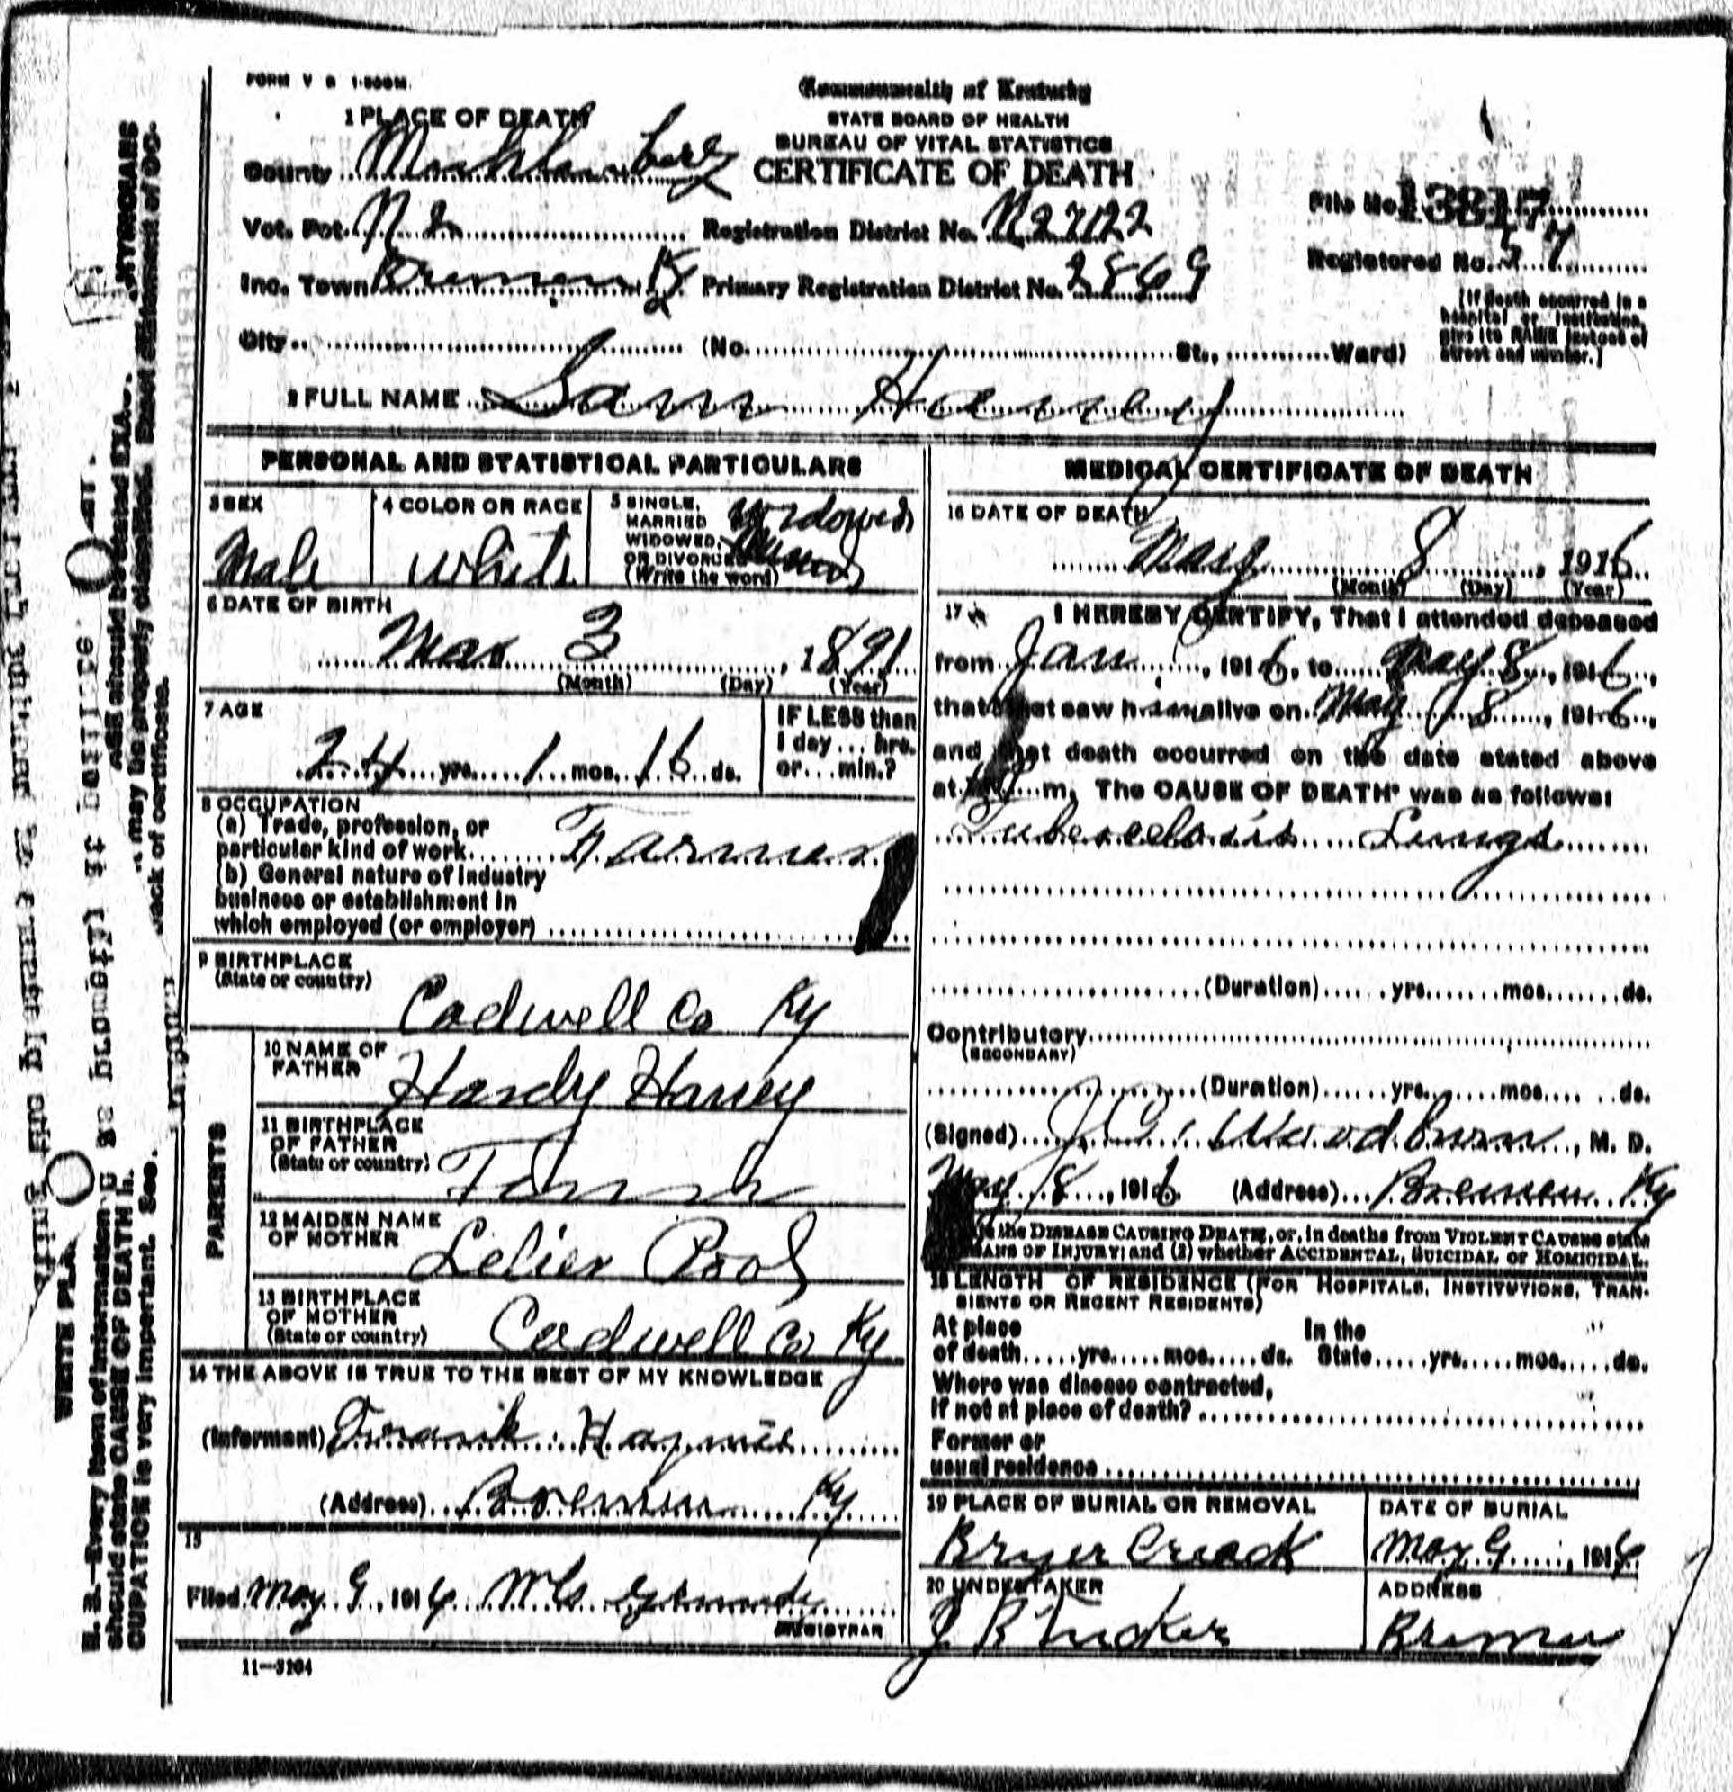 FORM V S 1-500M.
Commonwealth of Kentucky
STATE BOARD OF HEALTH
BUREAU OF VITAL STATISTICS
CERTIFICATE OF DEATH
1 PLACE OF DEATH
County Muhlenberg
File No. 13817
Vot. Pct. Registration District No.
Registered No. 57
Inc. Town Bremen Ky Primary Registration District No. 2869
City (No. St., Ward)
[If death occurred in a
hospital or institution,
give its NAME instead of
street and number.]
2 FULL NAME Sam Harvey
PERSONAL AND STATISTICAL PARTICULARS
3 SEX
Male
4 COLOR OR RACE
White
5 SINGLE,
MARRIED
WIDOWED,
OR DIVORCED
(Write the word)
widowed
6 DATE OF BIRTH
Mar 3, 1891
(Month) (Day) (Year)
7 AGE
24 yrs. 1 mos. 16 ds.
IF LESS than
1 day ... hrs.
or ... min.?
8 OCCUPATION
(a) Trade, profession, or
particular kind of work Farmer
(b) General nature of industry
business or establishment in
which employed (or employer)
9 BIRTHPLACE
(State or country)
Cadwell Co Ky
PARENTS
10 NAME OF
FATHER
Hardy Harvey
11 BIRTHPLACE
OF FATHER
(State or country)
Tenn
12 MAIDEN NAME
OF MOTHER
Pool
13 BIRTHPLACE
OF MOTHER
(State or country)
Cadwell Co Ky
14 THE ABOVE IS TRUE TO THE BEST OF MY KNOWLEDGE
(Informant) Frank
(Address) Bremen Ky
15
Filed May 9, 1916
REGISTRAR
11-3104
MEDICAL CERTIFICATE OF DEATH
16 DATE OF DEATH
May 8, 1916
(Month) (Day) (Year)
17 I HEREBY CERTIFY, That I attended deceased
from Jan, 1916, to May 8, 1916,
that I last saw him alive on May 8, 1916,
and that death occurred on the date stated above
at m. The CAUSE OF DEATH* was as follows:
Tuberculosis Lungs
(Duration) yrs. mos. ds.
Contributory
(SECONDARY)
(Duration) yrs. mos. ds.
(Signed) J.C. Woodburn, M. D.
May 8, 1916 (Address) Bremen Ky
the DISEASE CAUSING DEATH, or, in deaths from VIOLENT CAUSES state
MEANS OF INJURY; and (2) whether ACCIDENTAL, SUICIDAL or HOMICIDAL.
18 LENGTH OF RESIDENCE (FOR HOSPITALS, INSTITUTIONS, TRAN-
SIENTS OR RECENT RESIDENTS)
At place In the
of death yrs. mos. ds. State yrs. mos. ds.
Where was disease contracted,
if not at place of death?
Former or
usual residence
19 PLACE OF BURIAL OR REMOVAL
Bryer Creack
DATE OF BURIAL
May 9, 1916
20 UNDERTAKER
J R Tucker
ADDRESS
Bremen
WRITE PLA
N. B.—Every item of information
AGE should be stated EXA
should state CAUSE OF DEATH
may be properly classified. Exact statement of OC-
CUPATION is very important. See
back of certificate.